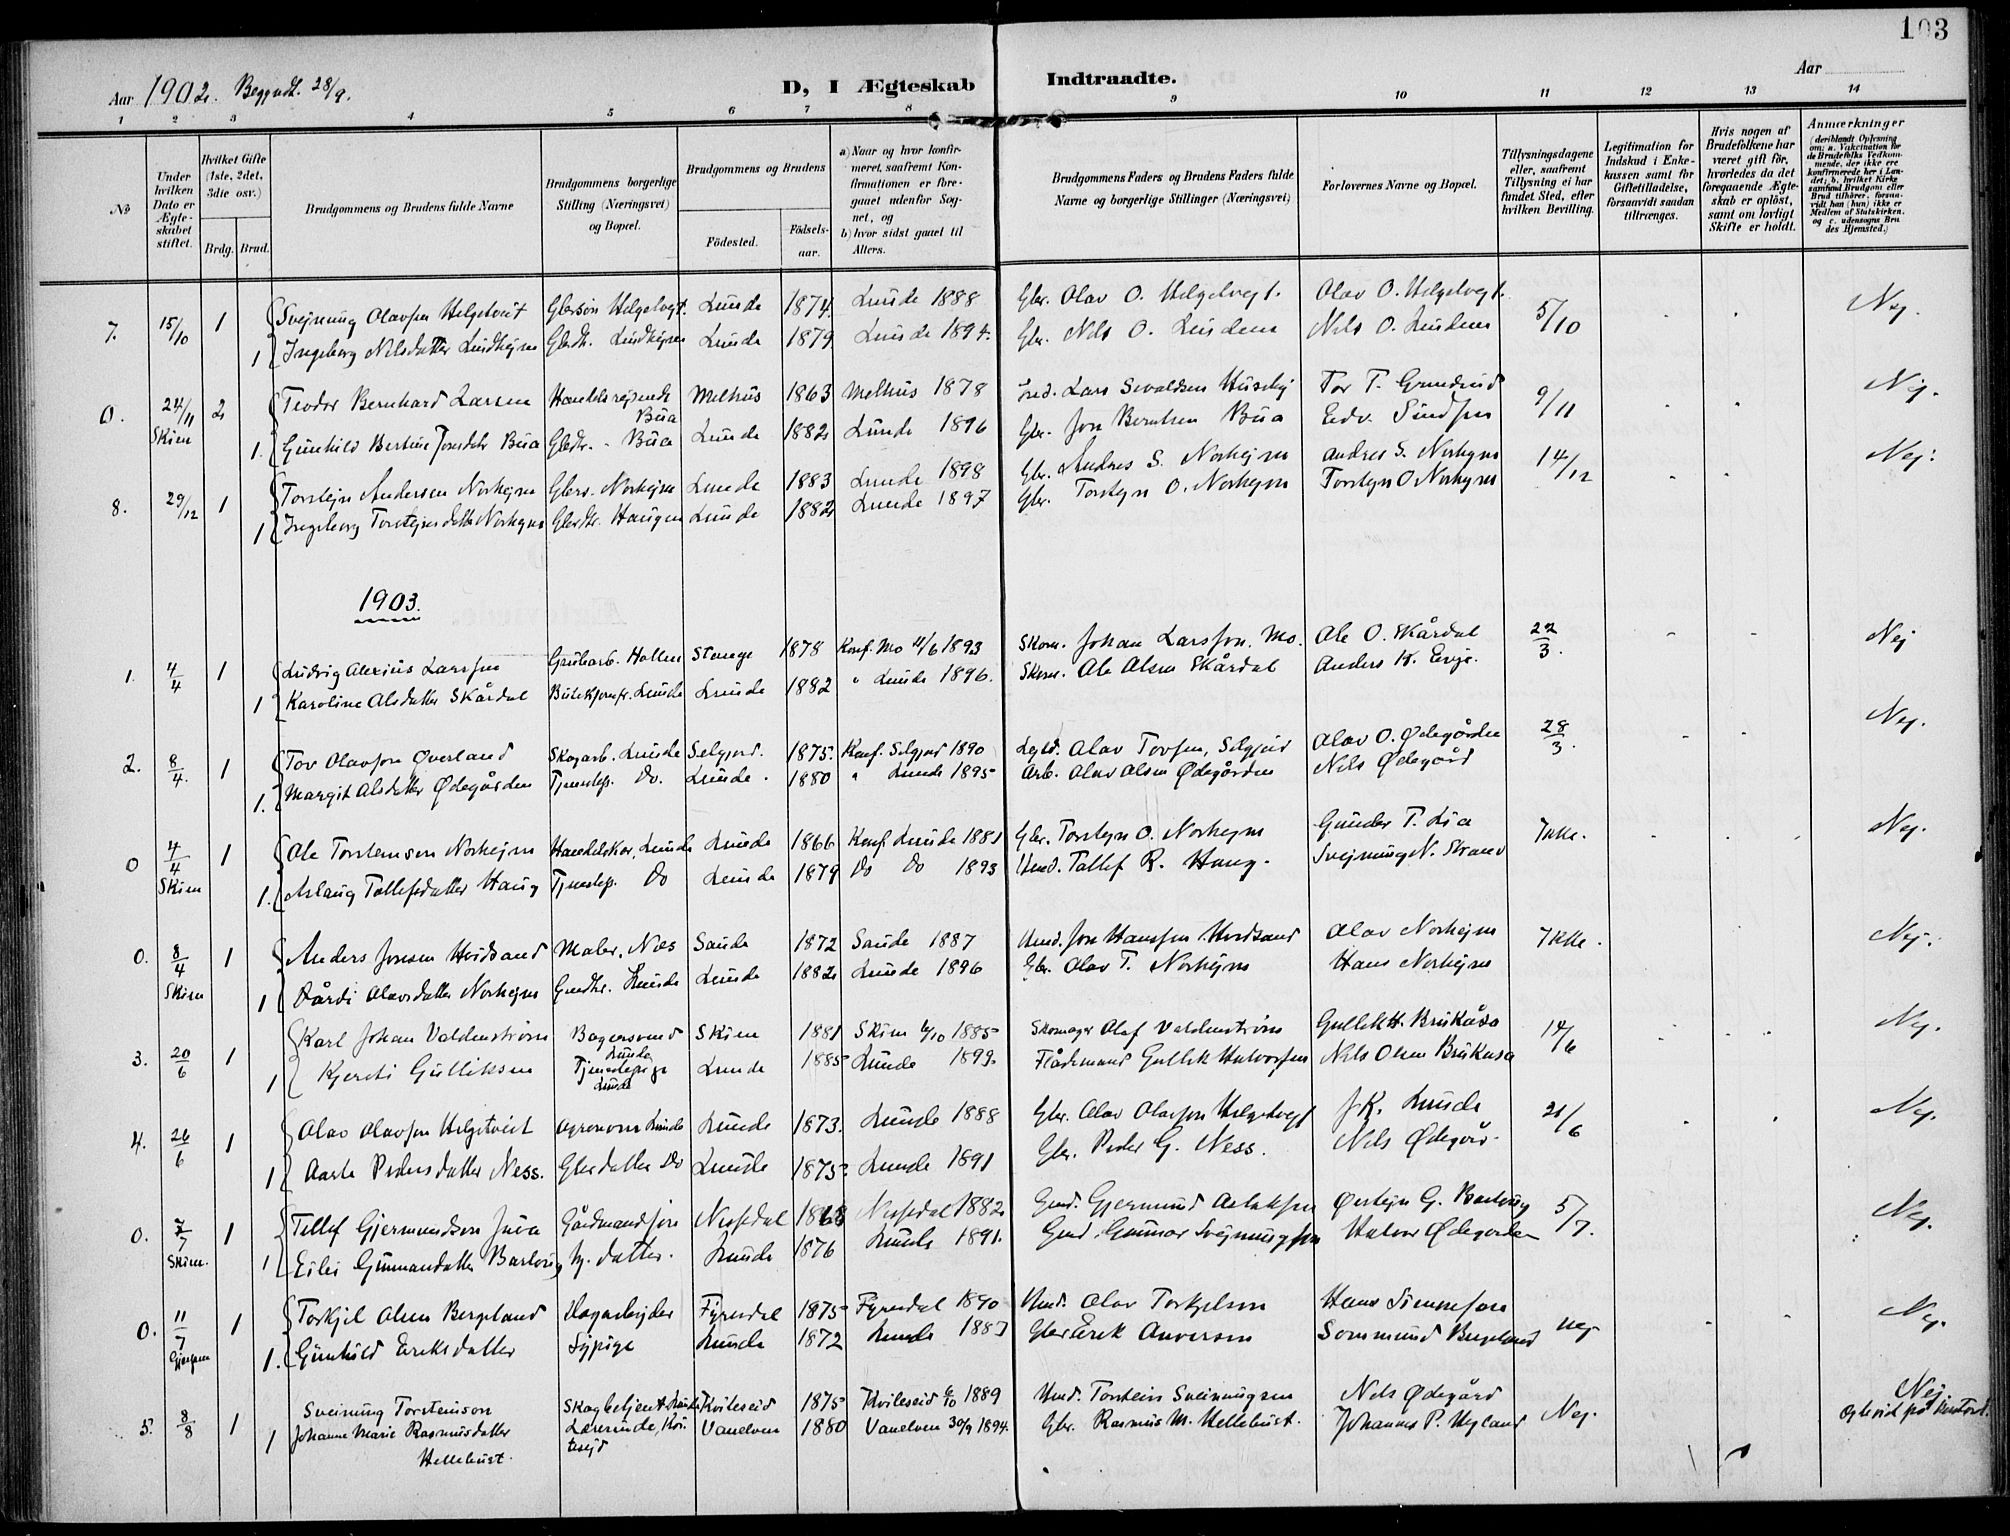 103
Aar 1902. Begyndt 28/9. D, I Ægteskab Indtraadte. Aar
1 2 3 4 5 6 7 8 9 10 11 12 13 14
No
Under hvilken Dato er Ægteskabet stiftet.
Hvilket Gifte (1ste, 2det, 3die osv.)
Brdg. Brud.
Brudgommens og Brudens fulde Navne
Brudgommens borgerlige Stilling (Næringsvei) og Bopæl.
Brudgommens og Brudens
Födested. Födselsaar.
a) Naar og hvor konfirmeret, saafremt Konfirmationen er foregaaet udenfor Sognet, og
b) hvor sidst gaaet til Alters.
Brudgommens Faders og Brudens Faders fulde Navne og borgerlige Stillinger (Næringsvei)
Forlovernes Navne og Bopæl.
Tillysningsdagene eller, saafremt Tillysning ei har fundet Sted, efter hvilken Bevilling.
Legitimation for Indskud i Enkekassen samt for Giftetilladelse, forsaavidt saadan tiltrænges.
Hvis nogen af Brudefolkene har været gift för, hvorledes da det foregaaende Ægteskab er oplöst, samt om lovligt Skifte er holdt.
Anmærkninger (deriblandt Oplysning om: a. Vakcination for de Brudefolks Vedkommende, der ikke ere konfirmerede her i Landet; b. hvilket Kirkesamfund Brudgom eller Brud tilhörer, forsaavidt han (hun) ikke er Medlem af Statskirken, og c. udensogns Brudes Hjemsted.)
7. 15/10 1 Svejnung Olavsen Helgetveit Gbersøn Helgetvegt. Lunde 1874. Lunde 1888 Gbr. Olav O. Helgetvegt. Olav O. Helgetvegt. 5/10 Nej.
1 Ingeborg Nilsdatter Lindhejm Gbrdtr. Lindhejm Lunde 1879 Lunde 1894. Gbr. Nils O. Lindem Nils O. Lindem
0. 24/11 Skien 2 Teodor Bernhard Larsen Handelsrejsende Büa Melhus 1863 Melhus 1878 Lars Sivaldsen Huseby Tor T. Grundrud 9/11 Nej.
1. Gunhild Bertine Jonsdatr Büa Gbrdtr. Büa Lunde 1882 Lunde 1896 Gbr. Jon Berntsen Büa Edv. Sindsen
8. 29/12 1 Torstejn Andersen Norhejm Gbers. Norhejm Lunde 1883 Lunde 1898 Gbr. Andres S. Norhejm Andres S. Norhejm 14/12 Nej.
1 Ingeborg Torstejnsdatter Norhejm Gbrdtr. Haugen Lunde 1882 Lunde 1897 Gbr. Torstejn O. Norhejm Torstejn O Norhejm
1903.
1. 4/4 1 Ludvig Alexius Larssen Grubarb. Hollen Stange 1878 Konf. Mo 11/6 1893 Skom. Johan Larsson. Mo. Ole O. Skårdal 22/3. Nej
1 Karoline Olsdatter Skårdal Lunde Lunde 1882 " Lunde 1896. Skom. Ole Olsen Skårdal Anders K. Evje.
2. 8/4. 1 Tov Olavson Øverland Skogarb. Lunde Selgjord. 1875. Konf. Selgjord 1890 Olav Tovsen, Selgjord Olav O. Ødegården 28/3. Nej.
1. Margit Olsdatter Ødegården Tjenestep. Do. Lunde. 1880 " Lunde 1895 Arb. Olav Olsen Ødegården Nils Ødegård
0 4/4 Skien 1 Ole Torstensen Norhejm Handelskar, Lunde Lunde 1866 Konf Lunde 1881 Gbr. Torstejn O. Norhejm Gunder T. Lia Ikke. Nej.
1. Aslaug Tollefsdatter Haug Tjenestep. Do Lunde 1879 Do Do 1893 Hmd. Tallef R. Haug. Svejnung N. Strand
0. 8/4 Skien 1 Anders Jonsen Hvidsand Maler, Næs Saude 1872 Saude 1887 Hmd. Jon Hanssen Hvidsand Olav Norhejm Ikke. Nej.
1 Bårdi Olavsdatter Norhejm Lunde Lunde 1882 Lunde 1896 Gbr. Olav T. Norhejm Hans Norhejm
3. 20/6 1 Karl Johan Valdenstrøm Bagersvend Lunde Skien 1881 Skien 1885 Skomager Olaf Valdenstrøm Gullik H. Brukåsa 14/6 Nej.
1 Kjersti Gulliksen Tjenestepige Lunde Lunde 1885 Lunde 1899. Gullik Halvorsen Nils Olsen Brukåsa
4. 26/6 1 Olav Olavsen Helgetveit Agronom Lunde Lunde 1873. Lunde 1888 Gbr. Olav Olavsen Helgetvegt J K. Lunde 21/6 Nej.
1 Aaste Pedersdatter Ness. Gbrdatter Do Lunde 1875 Lunde 1891 Gbr. Peder G. Ness. Nils Ødegård
0. 7/7 Skien. 1 Tellef Gjermundson Juva Gårdmandssøn Nissedal 1868 Nissedal 1882 Gmd. Gjermund Aslaksen Øvstejn G. Barborg 5/7. Nej.
1 Eilei Gunnarsdatter Barborg Gj. datter. Lunde 1876 Lunde 1891. Gmd. Gunnar Svejnungsen Halvor Ødegården
0. 11/7 Gjerpen 1 Torkjel Olsen Bergland Dagarbejder Fyresdal 1875 Fyresdal 1890 Hmd. Olav Torkjelsen Hans Simonsen nej Nej.
1. Gunhild Eriksdatter Sypige Lunde 1872 Lunde 1887 Gbr Erik Anversen Sommund Bergland
5. 8/8 1 Sveinung Torstenson Skogbetjent Lunde Kviteseid 1875 Kviteseid 6/10 1889 Hmd. Torstein Sveinungsen Nils Ødegård Nej. Nej
1 Johanne Marie Rasmusdatter Hellebust. Lærerinde, Kvitesejd Vanelven 1880 Vanelven 30/9 1894. Gbr. Rasmus M. Hellebust. Johannes P. Nyland